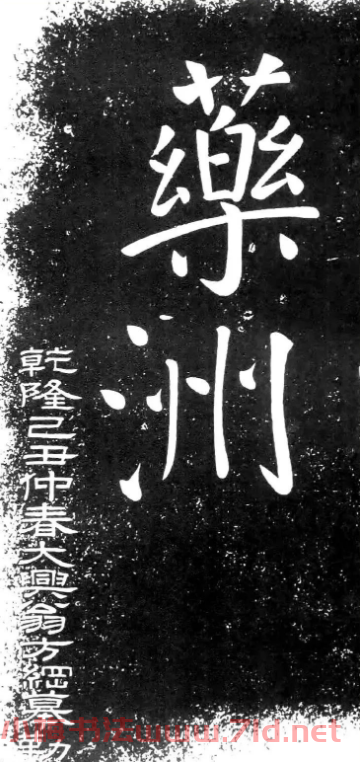 藥洲
乾隆己丑仲春大興翁方綱莫勒
小楠书法www.7ld.net